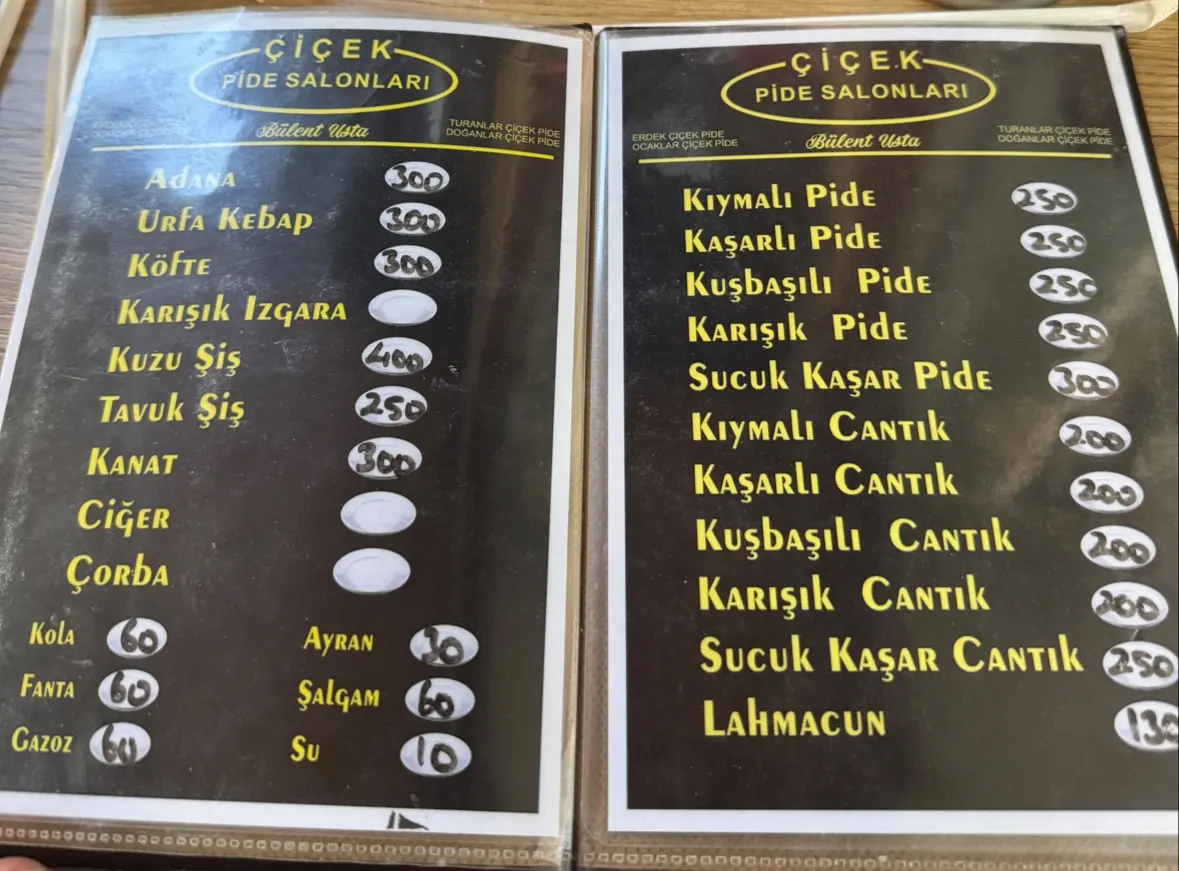 ÇİÇEK
PİDE SALONLARI
Bülent Usta
TURANLAR ÇİÇEK PİDE
DOĞANLAR ÇİÇEK PİDE
Adana 300
Urfa Kebap 300
Köfte 300
Karışık Izgara
Kuzu Şiş 400
Tavuk Şiş 250
Kanat 300
Ciğer
Çorba
Kola 60 Ayran 30
Fanta 60 Şalgam 60
Gazoz 60 Su 10
ÇİÇEK
PİDE SALONLARI
ERDEK ÇİÇEK PİDE
OCAKLAR ÇİÇEK PİDE
Bülent Usta
TURANLAR ÇİÇEK PİDE
DOĞANLAR ÇİÇEK PİDE
Kıymalı Pide 250
Kaşarlı Pide 250
Kuşbaşılı Pide 250
Karışık Pide 250
Sucuk Kaşar Pide 300
Kıymalı Cantık 200
Kaşarlı Cantık 200
Kuşbaşılı Cantık 200
Karışık Cantık 200
Sucuk Kaşar Cantık 250
Lahmacun 130